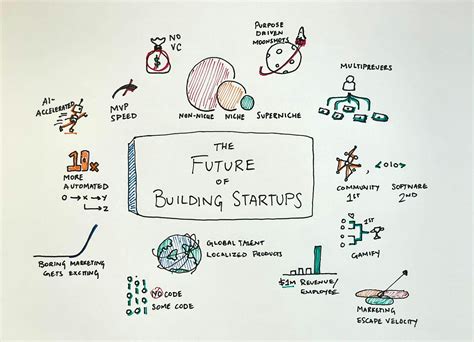 NO
VC
$
PURPOSE
DRIVEN
MOONSHOTS
MULTIPRENERS
AI-
ACCELERATED
MVP
SPEED
NON-NICHE
NICHE
SUPERNICHE
THE
FUTURE
OF
BUILDING STARTUPS
10x
MORE
AUTOMATED
O → X → Y
↳ Z
<010>
COMMUNITY
1ST
SOFTWARE
2ND
BORING MARKETING
GETS EXCITING
GLOBAL TALENT
LOCALIZED PRODUCTS
1ST
GAMIFY
NO CODE
SOME CODE
$1M REVENUE/
EMPLOYEE
MARKETING
ESCAPE VELOCITY